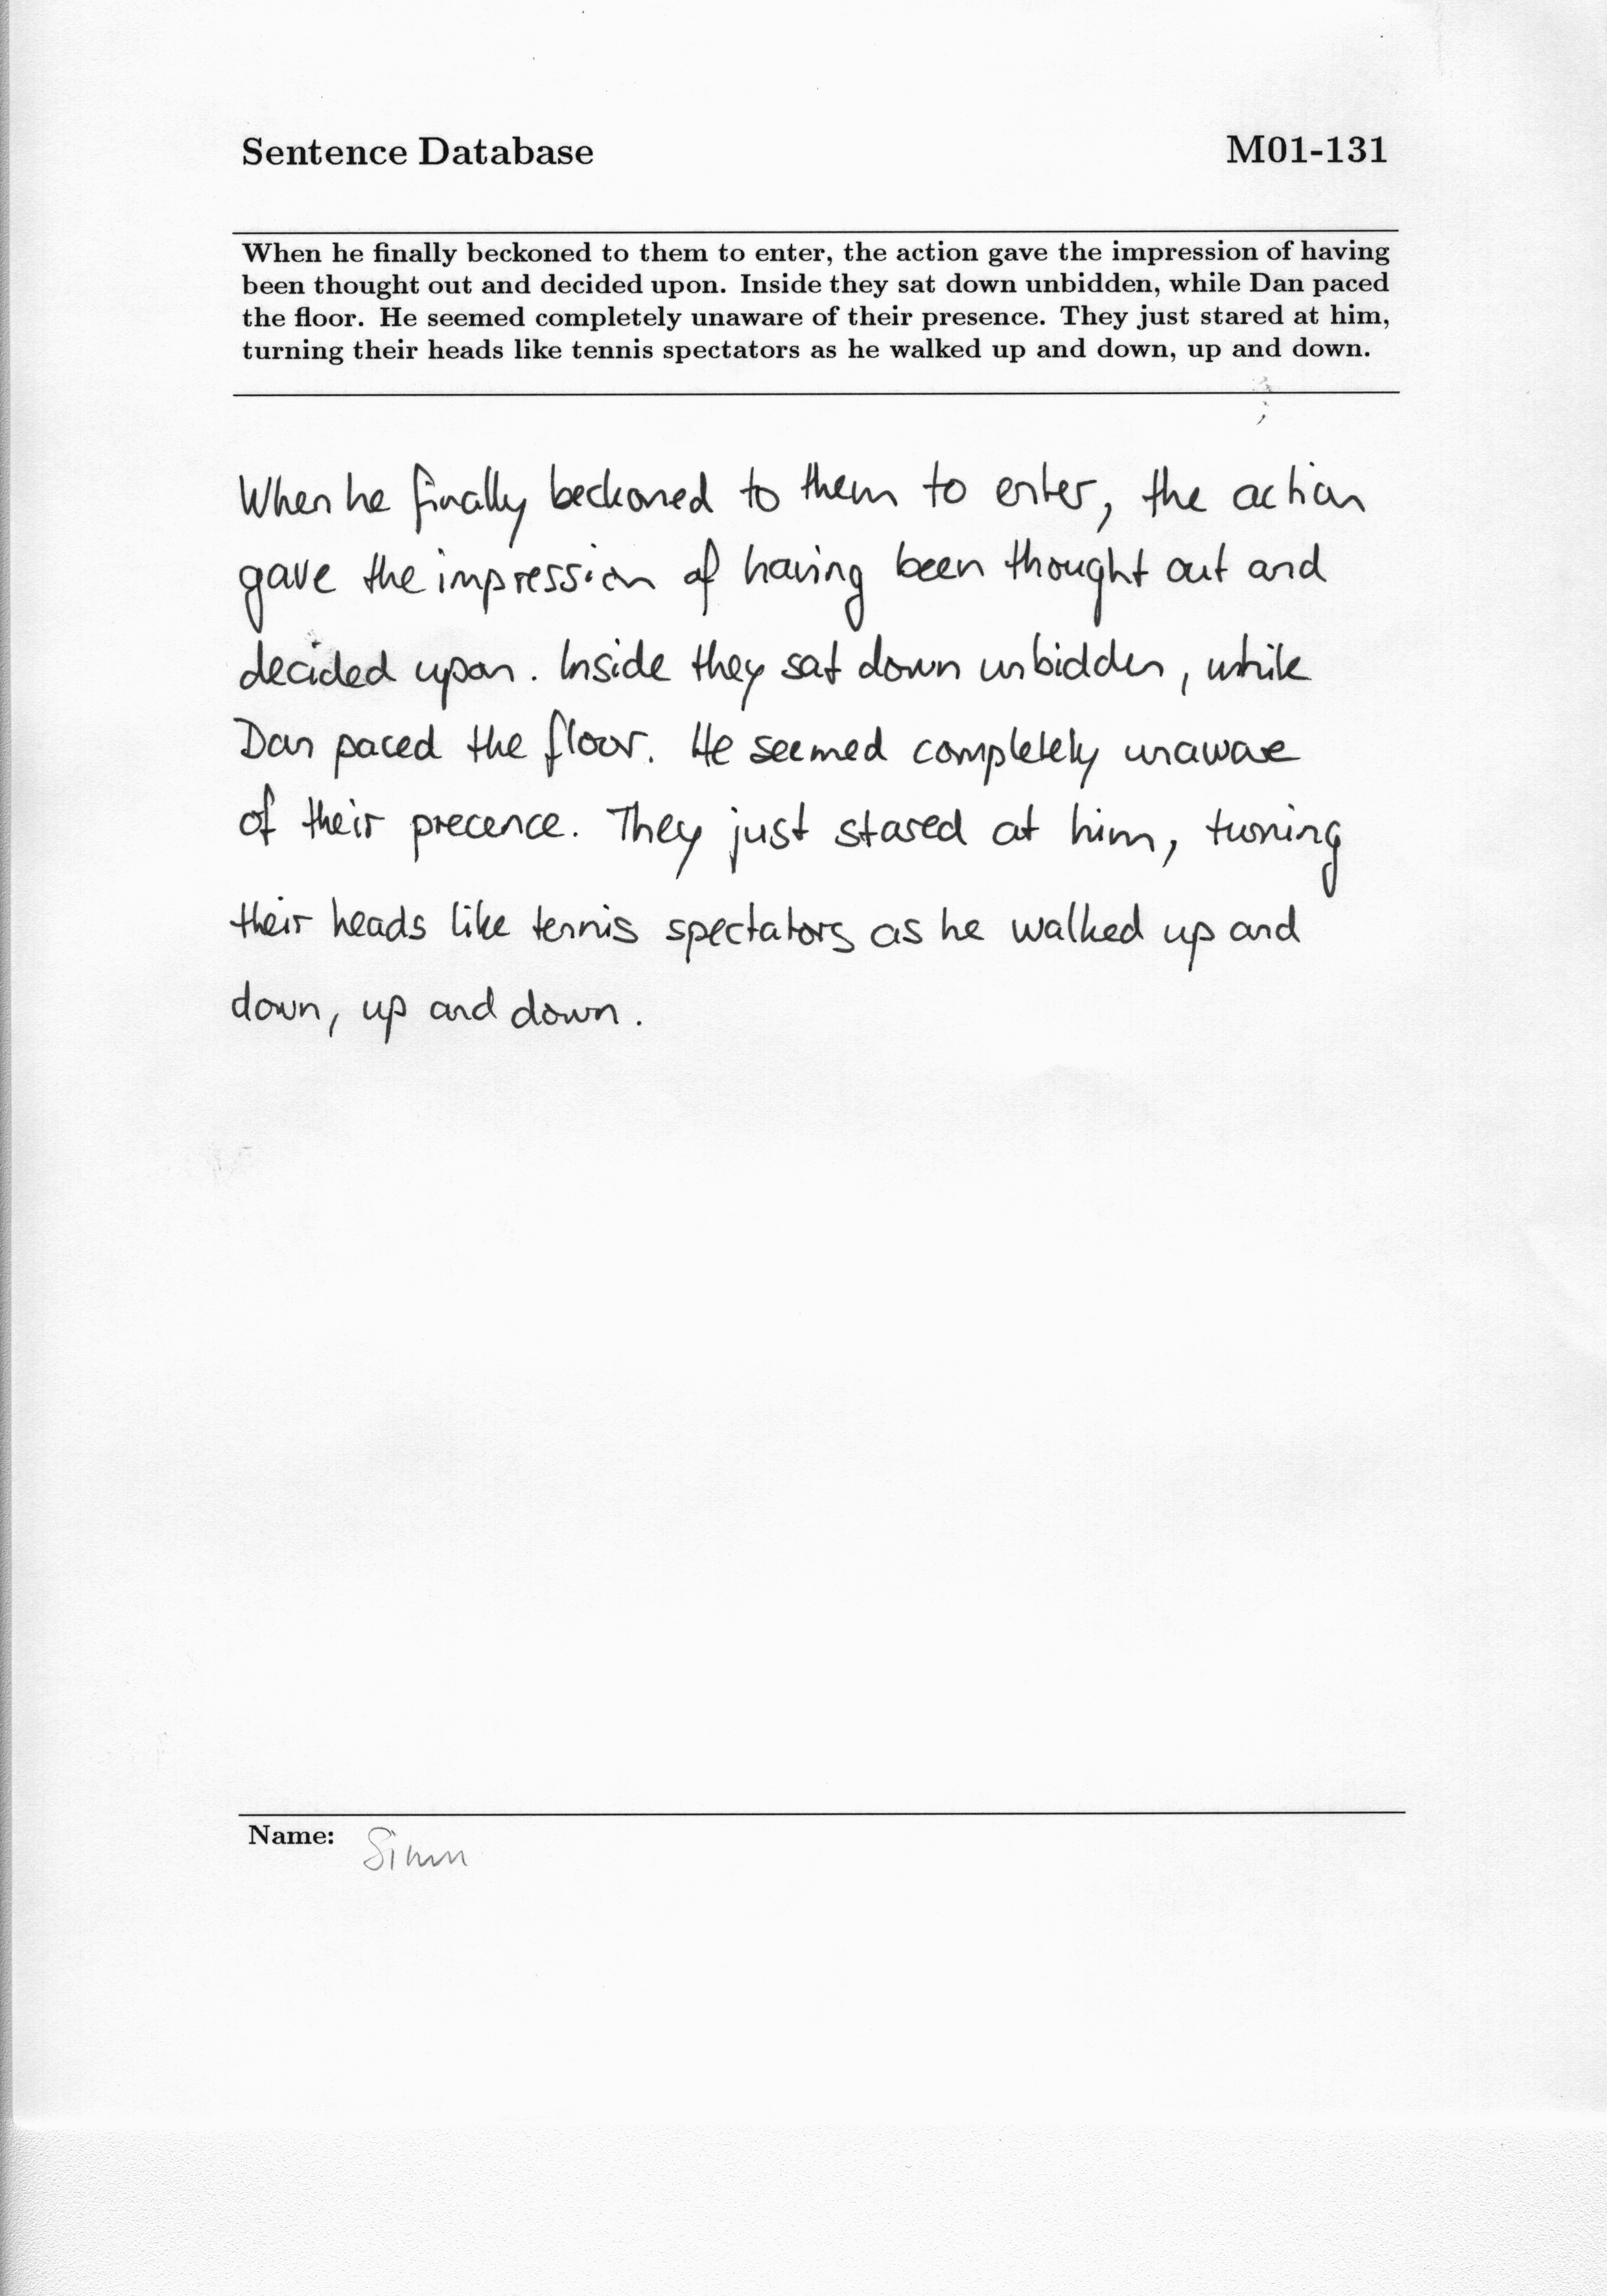 Sentence Database M01-131
When he finally beckoned to them to enter, the action gave the impression of having
been thought out and decided upon. Inside they sat down unbidden, while Dan paced
the floor. He seemed completely unaware of their presence. They just stared at him,
turning their heads like tennis spectators as he walked up and down, up and down.
When he finally beckoned to them to enter, the action
gave the impression of having been thought out and
decided upon. Inside they sat down unbidden, while
Dan paced the floor. He seemed completely unaware
of their precence. They just stared at him, turning
their heads like tennis spectators as he walked up and
down, up and down.
Name: